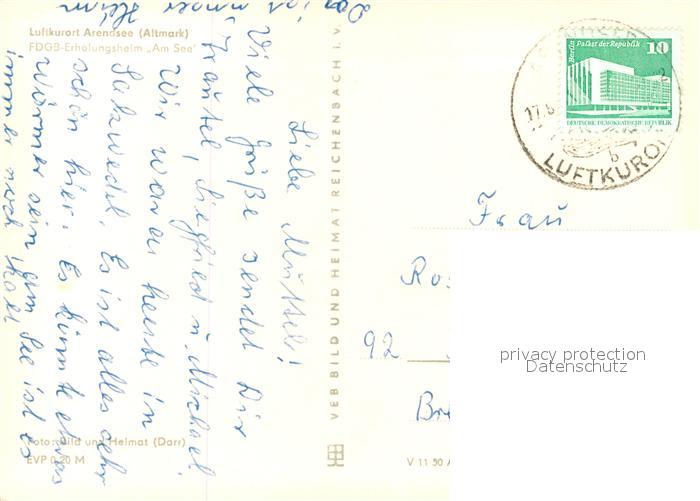 Luftkurort Arendsee (Altmark)
FDGB-Erholungsheim „Am See"
Liebe Mutti!
Viele Grüße sendet Dir
Traudel, Siegfried u. Michael.
Wir waren heute in
Salzwedel. Es ist alles sehr
schön hier. Es könnte etwas
wärmer sein am See ist es
immer noch kalt
Das ist unser Heim
Foto: Bild und Heimat (Darr)
EVP 0,20 M
VEB BILD UND HEIMAT REICHENBACH I. V.
V 11 50 A
Berlin Palast der Republik
10
DEUTSCHE DEMOKRATISCHE REPUBLIK
17.8
b
LUFTKUROR
Frau
Ros
92
privacy protection
Datenschutz